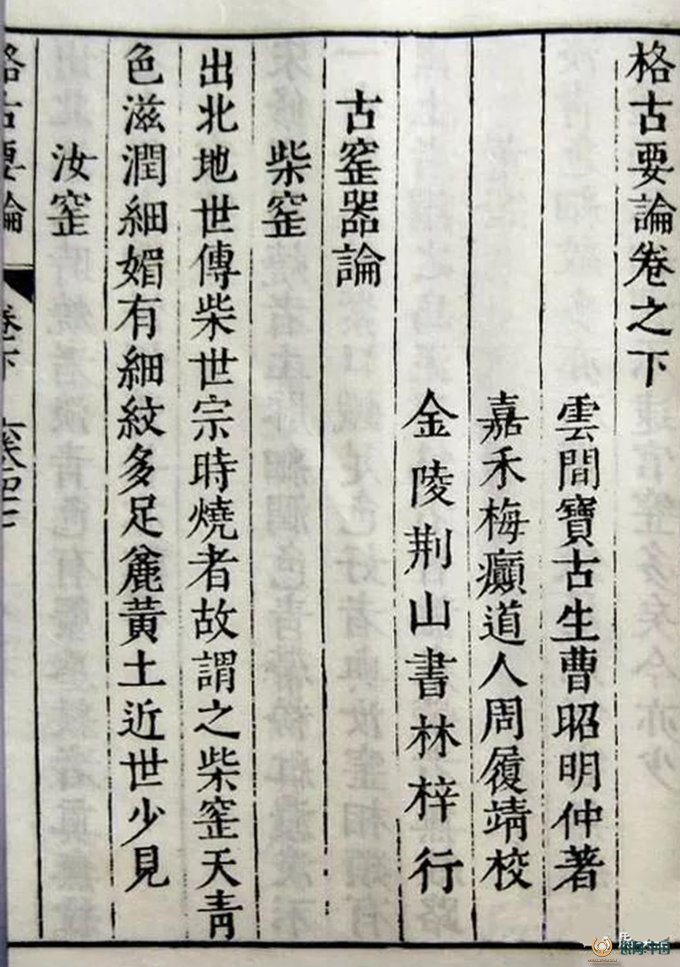 格古要論卷之下
雲間寶古生曹昭明仲著
嘉禾梅癲道人周履靖校
金陵荊山書林梓行
古窑器論
柴窑
出北地世傳柴世宗時燒者故謂之柴窑天青
色滋潤細媚有細紋多足麄黃土近世少見
汝窑
格古要論 卷下